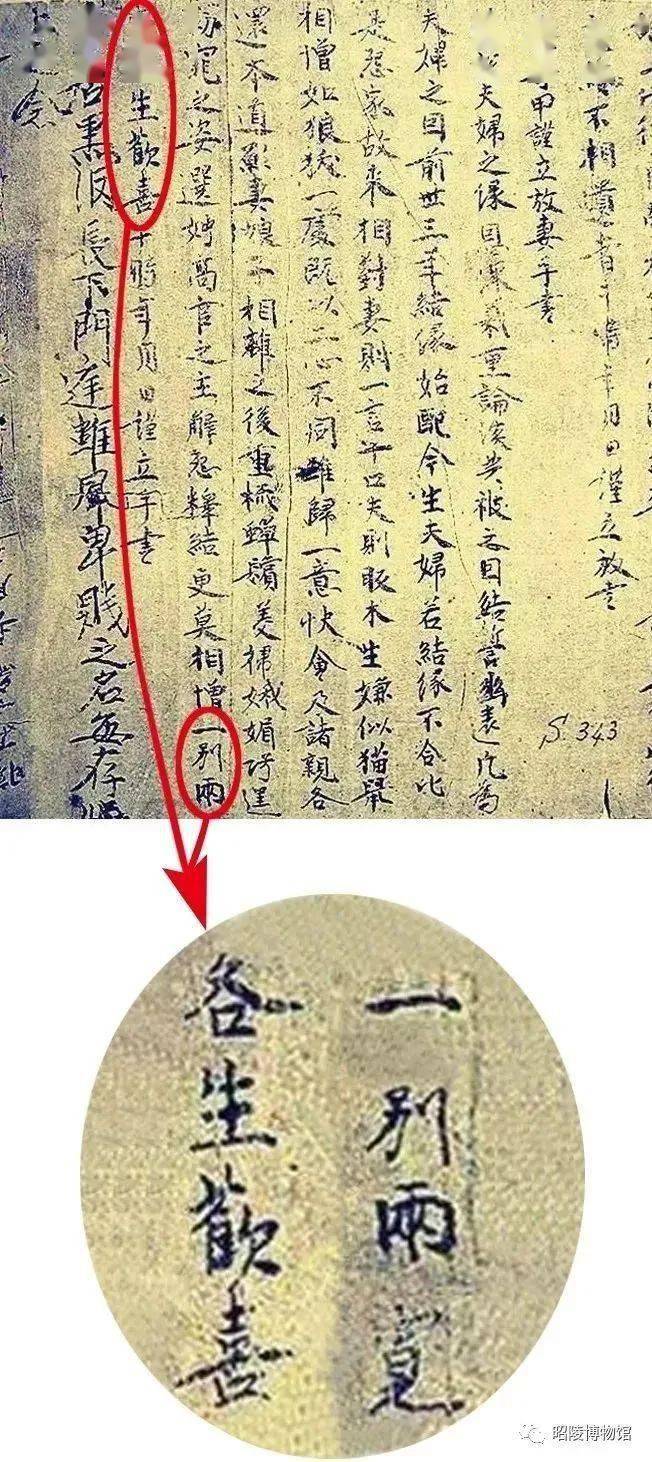 不相
年月日謹立放書
甲謹立放妻手書
夫婦之緣恩深義重論談共被之因結誓幽遠凡為
夫婦之因前世三年結緣始配今生夫婦若結緣不合比
是怨家故來相對妻則一言十口夫則販木生嫌似猫鼠
相憎如狼犺一處既以二心不同難歸一意快會及諸親各
還本道願妻娘子相離之後重梳蟬鬢美掃娥媚巧逞
窈窕之姿選娉高官之主解怨釋結更莫相憎一別兩
生歡喜于時年月日謹立手書
長下門庭雖風卑賤之名無存
S.343
一別兩寬
各生歡喜
昭陵博物馆